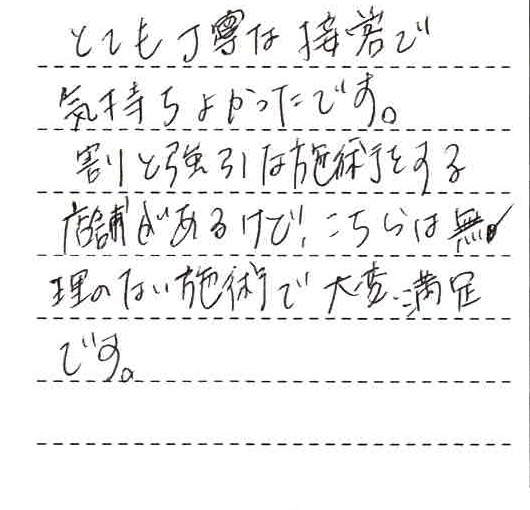 とても丁寧な接客で
気持ちよかったです。
割りと強引な施術をする
店舗があるけど、こちらは無
理のない施術で大変満足
です。